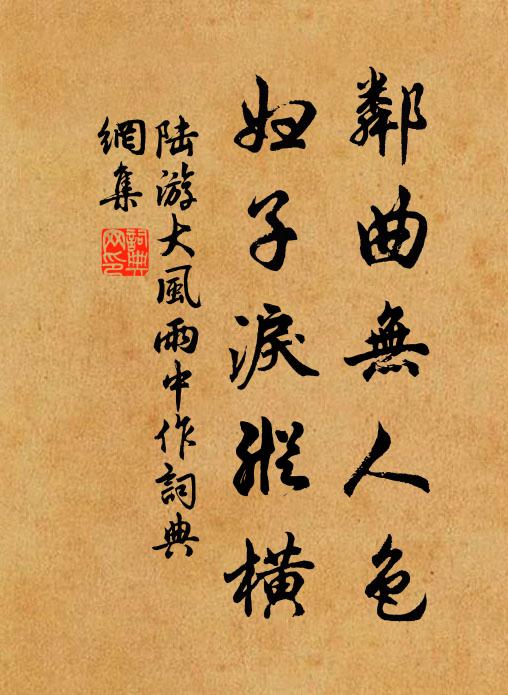 鄰曲無人色
妇子淚縱橫
陆游大風雨中作詞典
網集
詞典
网印